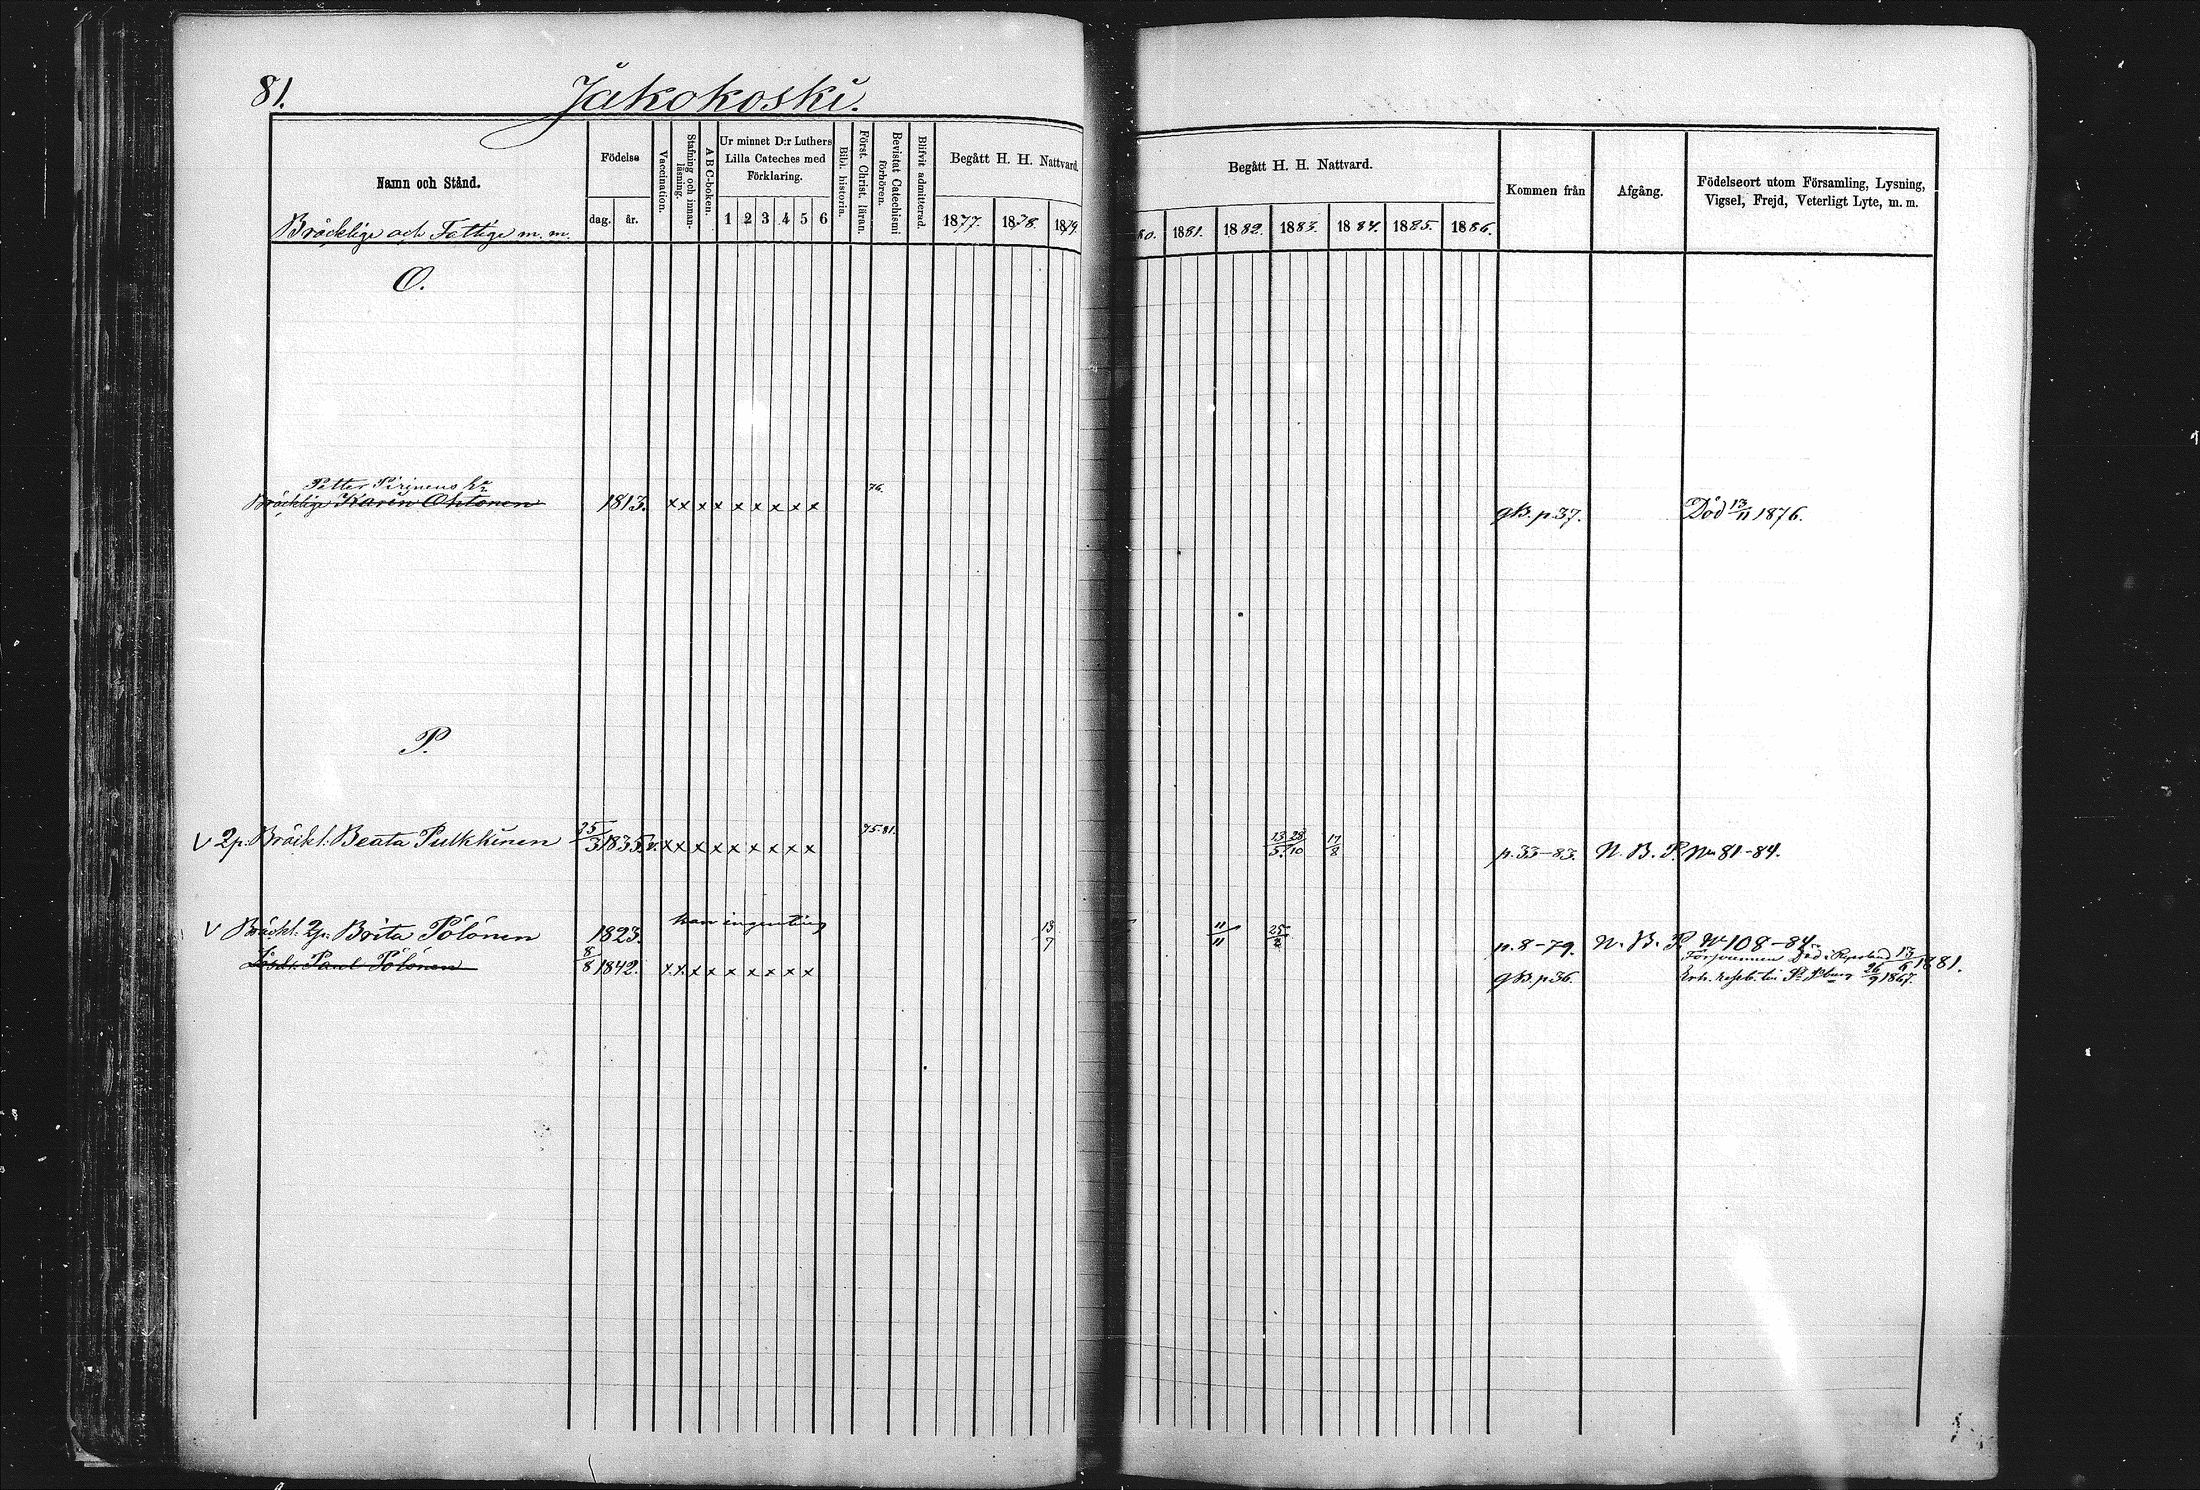 81. Jakokoski.
Namn och Stånd.
Bräcklige och Fattige m. m.
Födelse
dag. år.
Vaccination.
Stafning och innanläsning.
A B C-boken.
Ur minnet D:r Luthers
Lilla Cateches med
Förklaring.
1 2 3 4 5 6
Bibl. historia.
Först. Christ. läran.
Bevistat Catechismi förhören.
Blifvit admitterad.
Begått H. H. Nattvard.
1877. 1878. 1879.
Begått H. H. Nattvard.
80. 1881. 1882. 1883. 1884. 1885. 1886.
Kommen från
Afgång.
Födelseort utom Församling, Lysning,
Vigsel, Frejd, Veterligt Lyte, m. m.
O.
Petter Pirinens
Bräcklige Karin Ohtonen 1813. x x x x x x x x x 76. gB. p. 37. Död 13/11 1876.
P.
V 2p: Bräckl: Beata Pulkkinen 25/3 1835. v. x x x x x x x x x 75-81. 13/5. 28/10 17/8 p. 33-83. N. B. P. 81-84.
V Bräckl: 2p: Brita Pölönen 1823. kan ingenting 13/7 11/11 25/2 p. 8-79. N. B. P. No 108-84.
Försvunnen Död i 13/6 1881.
Lösdr. Paul Pölönen 8/8 1842. x x x x x x x x x gB. p. 36. 26/9 1867.